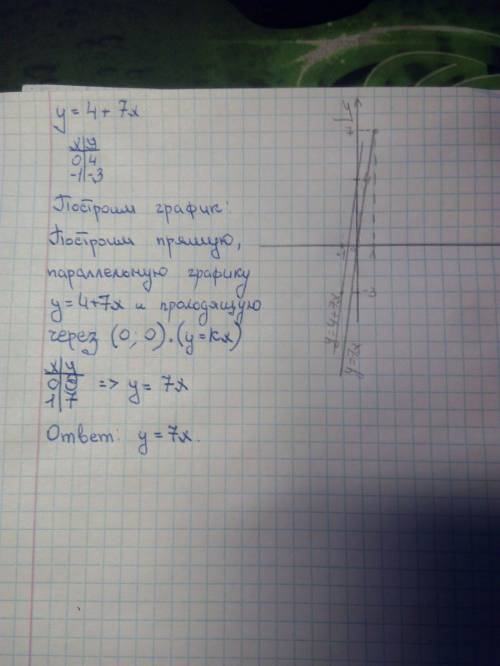 y = 4 + 7x
x | y
0 | 4
-1 | -3
Построим график:
Построим прямую,
параллельную графику
y = 4+7x и проходящую
через (0; 0). (y = kx)
x | y
0 | 0
1 | 7
=> y = 7x
Ответ: y = 7x.
y
7
-3
y = 4 + 7x
y = 7x